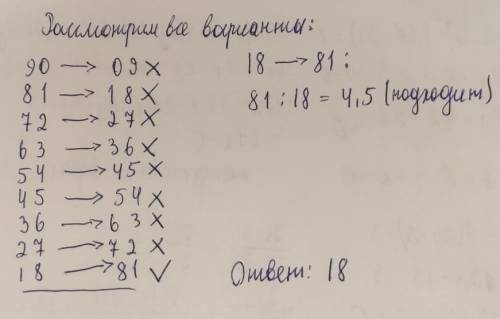 Рассмотрим все варианты:
90 → 09 ×
81 → 18 ×
72 → 27 ×
63 → 36 ×
54 → 45 ×
45 → 54 ×
36 → 63 ×
27 → 72 ×
18 → 81 ✓
18 → 81:
81 : 18 = 4,5 (подходит)
Ответ: 18